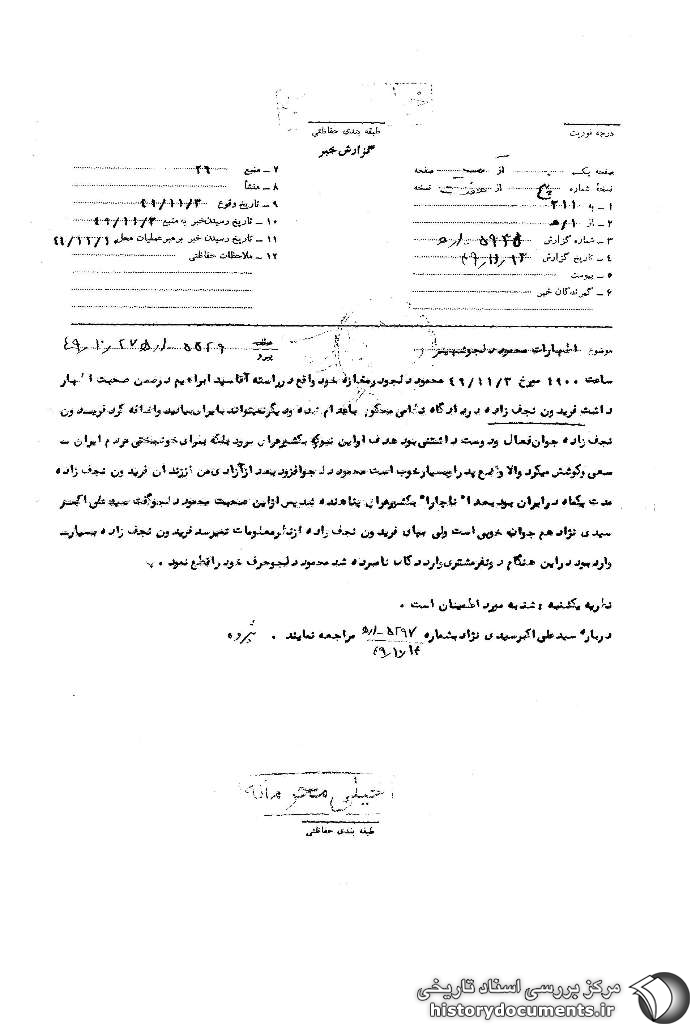 طبقه بندی حفاظتی
درجه فوریت
گزارش خبر
صفحه یک از صفحه
نسخه شماره از نسخه
۱ – به ۳۱۱
۲ – از ۱/ه
۳ – شماره گزارش
۴ – تاریخ گزارش
۵ – پیوست
۶ – گیرندگان خبر
۷ – منبع ۲۶
۸ – منشأ
۹ – تاریخ وقوع ۴۹/۱۱/۳
۱۰ – تاریخ رسیدن خبر به منبع ۴۹/۱۱/۳
۱۱ – تاریخ رسیدن خبر برهبر عملیات محل
۱۲ – ملاحظات حفاظتی
موضوع اظهارات محمود دلجو
پیرو
ساعت ۱۹۰۰ مورخ ۴۹/۱۱/۳ محمود دلجو در مغازه خود واقع در راسته آقا سید ابراهیم در ضمن صحبت اظهار
داشت فریدون نجف زاده در دادگاه نظامی محکوم باعدام شده و دیگر نمیتواند بایران بیاید و اضافه کرد فریدون
نجف زاده جوان فعال و دوست داشتنی بود هدف او این نبود که بکشور عراق برود بلکه برای خوشبختی مردم ایران
سعی و کوشش میکرد والا وضع پدر او بسیار خوب است محمود دلجو افزود بعد از آزادی من از زندان فریدون نجف زاده
مدت یکماه در ایران بود بعداً ناچاراً بکشور عراق پناهنده شد پس از این صحبت محمود دلجو گفت سید علی اکبر
سیدی نژاد هم جوان خوبی است ولی بپای فریدون نجف زاده از نظر معلومات نمیرسد فریدون نجف زاده بسیار
وارد بود در این هنگام دو نفر مشتری وارد دکان نامبرده شد محمود دلجو حرف خود را قطع نمود .
نظریه یکشنبه . شنبه مورد اطمینان است .
درباره سید علی اکبر سیدی نژاد بشماره ۵۲۹۷ مراجعه نمایند .
خیلی محرمانه
طبقه بندی حفاظتی
مرکز بررسی اسناد تاریخی
historydocuments.ir